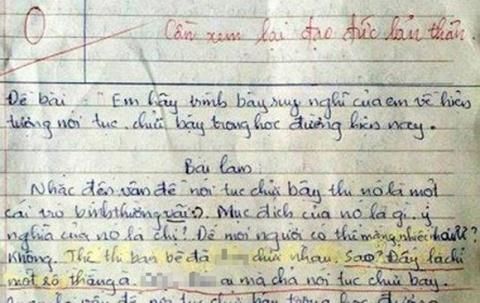 0
Cần xem lại đạo đức bản thân
Đề bài: "Em hãy trình bày suy nghĩ của em về hiện
tượng nói tục, chửi bậy trong học đường hiện nay.
Bài làm
Nhắc đến vấn đề nói tục chửi bậy thì nó là một
cái trò bình thường vãi:). Mục đích của nó là gì, ý
nghĩa của nó là chi? Để mọi người có thể mắng nhiếc nhau?
Không. Thế thì bạn bè đã chửi nhau. Sao? Đấy là chỉ
một số thằng a mà chả nói tục chửi bậy.
vấn đề nói tục chửi bậy trong học đường